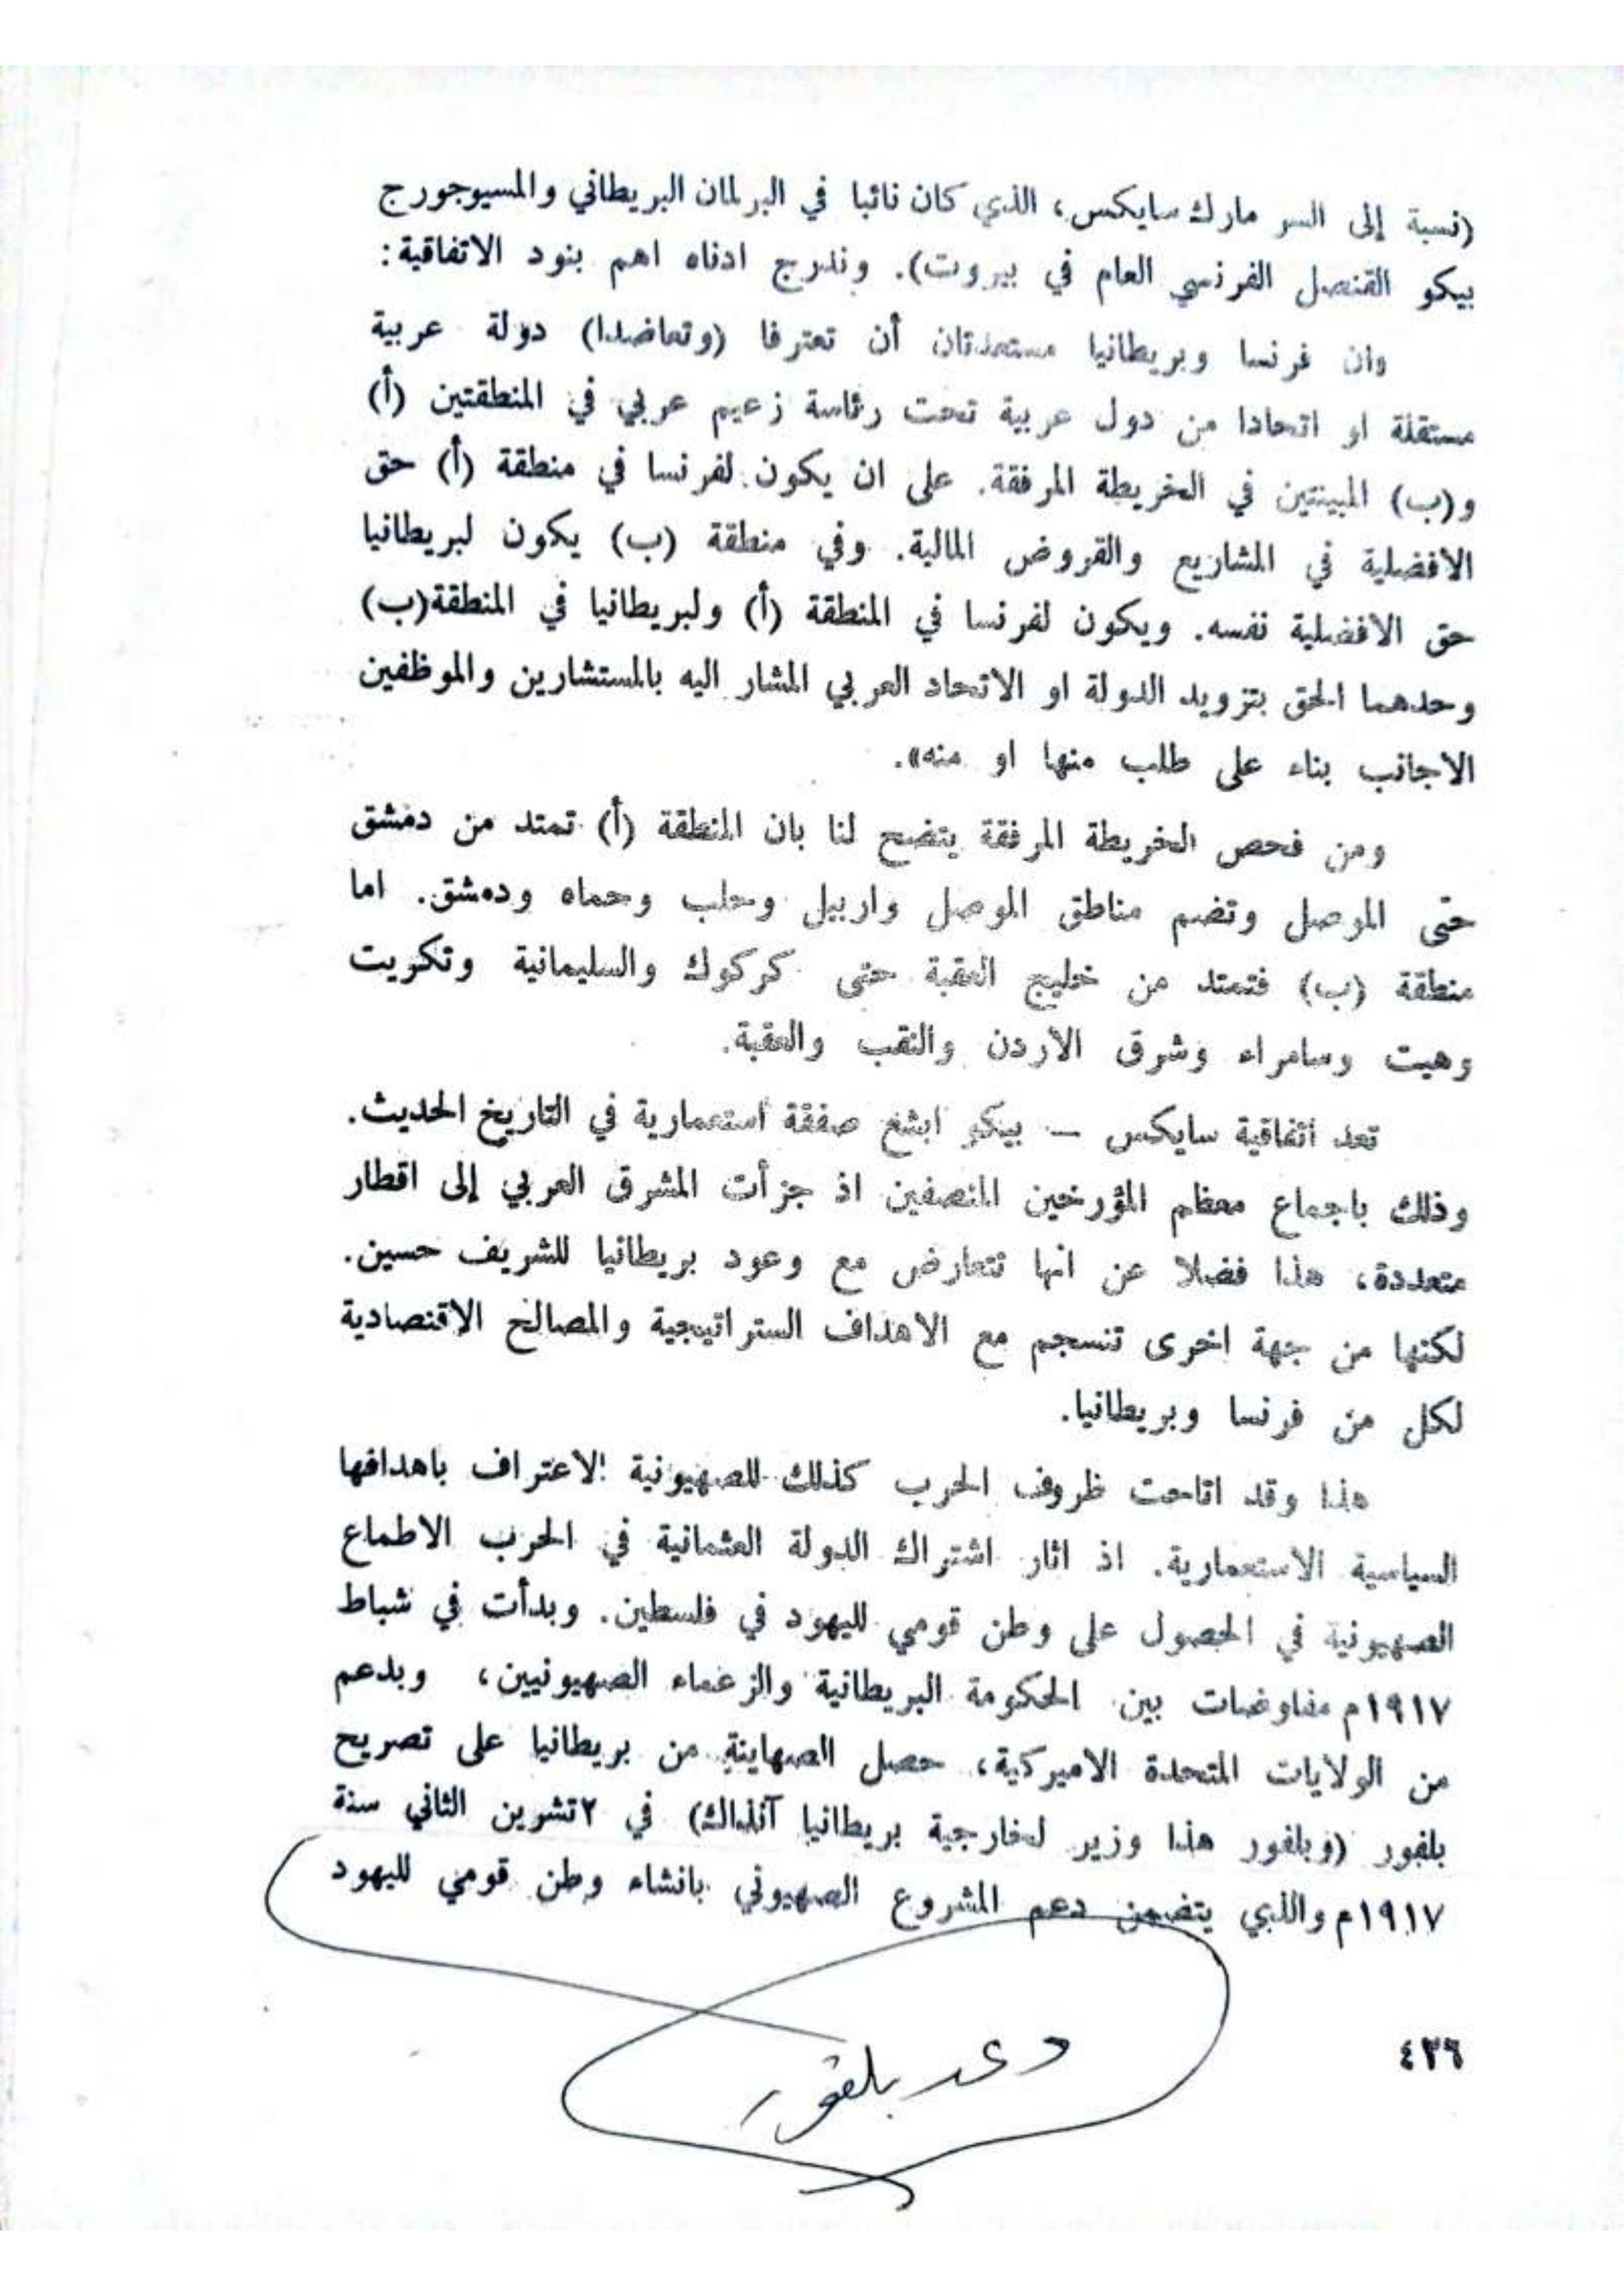 (نسبة إلى السر مارك سايكس، الذي كان نائبا في البرلمان البريطاني والمسيوجورج
بيكو القنصل الفرنسي العام في بيروت). وندرج ادناه اهم بنود الاتفاقية:
وان فرنسا وبريطانيا مستعدتان أن تعترفا (وتعاضدا) دولة عربية
مستقلة او اتحادا من دول عربية تحت رئاسة زعيم عربي في المنطقتين (أ)
و(ب) المبينتين في الخريطة المرفقة. على ان يكون لفرنسا في منطقة (أ) حق
الافضلية في المشاريع والقروض المالية. وفي منطقة (ب) يكون لبريطانيا
حق الافضلية نفسه. ويكون لفرنسا في المنطقة (أ) ولبريطانيا في المنطقة(ب)
وحدهما الحق بتزويد الدولة او الاتحاد العربي المشار اليه بالمستشارين والموظفين
الاجانب بناء على طلب منها او منه».
ومن فحص الخريطة المرفقة يتضح لنا بان المنطقة (أ) تمتد من دمشق
حتى الموصل وتضم مناطق الموصل واربيل وحلب وحماه ودمشق. اما
منطقة (ب) فتمتد من خليج العقبة حتى كركوك والسليمانية وتكريت
وهيت وسامراء وشرق الاردن والنقب والعقبة.
تعد اتفاقية سايكس – بيكو ابشع صفقة استعمارية في التاريخ الحديث.
وذلك باجماع معظم المؤرخين المنصفين اذ جزأت المشرق العربي إلى اقطار
متعددة، هذا فضلا عن انها تتعارض مع وعود بريطانيا للشريف حسين.
لكنها من جهة اخرى تنسجم مع الاهداف الستراتيجية والمصالح الاقتصادية
لكل من فرنسا وبريطانيا.
هذا وقد اتاحت ظروف الحرب كذلك للصهيونية الاعتراف باهدافها
السياسية الاستعمارية. اذ اثار اشتراك الدولة العثمانية في الحرب الاطماع
الصهيونية في الحصول على وطن قومي لليهود في فلسطين. وبدأت في شباط
١٩١٧م مفاوضات بين الحكومة البريطانية والزعماء الصهيونيين، وبدعم
من الولايات المتحدة الاميركية، حصل الصهاينة من بريطانيا على تصريح
بلفور (وبلفور هذا وزير لخارجية بريطانيا آنذاك) في ٢تشرين الثاني سنة
١٩١٧م والذي يتضمن دعم المشروع الصهيوني بانشاء وطن قومي لليهود
وعد بلفور
٤٣٦